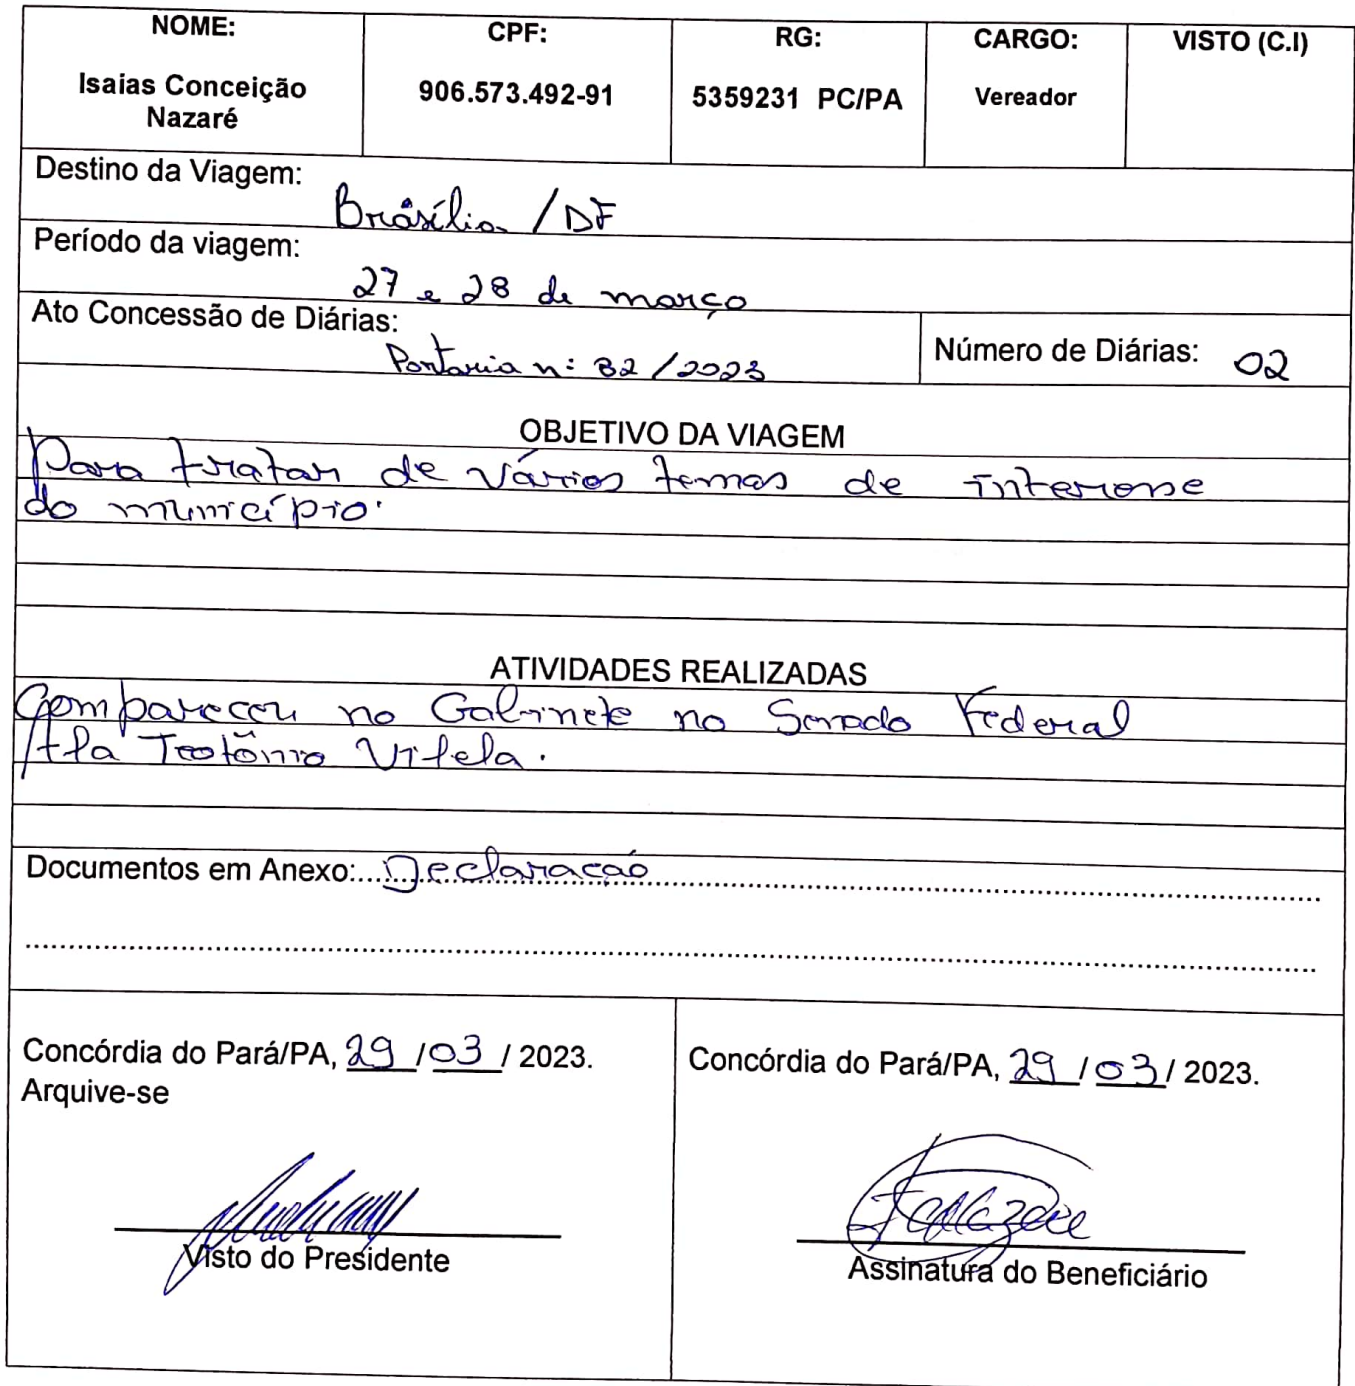 NOME: CPF: RG: CARGO: VISTO (C.I)
Isaias Conceição 906.573.492-91 5359231 PC/PA Vereador
Nazaré
Destino da Viagem:
Brasília /DF
Período da viagem:
27 e 28 de março
Ato Concessão de Diárias:
Portaria nº 32 /2023
Número de Diárias: 02
OBJETIVO DA VIAGEM
Para tratar de vários temas de interesse
do município.
ATIVIDADES REALIZADAS
Compareceu no Gabinete no Senado Federal
Teotônio Vilela.
Documentos em Anexo: Declaração
Concórdia do Pará/PA, 29 /03 / 2023.
Arquive-se
Visto do Presidente
Concórdia do Pará/PA, 29 /03/ 2023.
Assinatura do Beneficiário